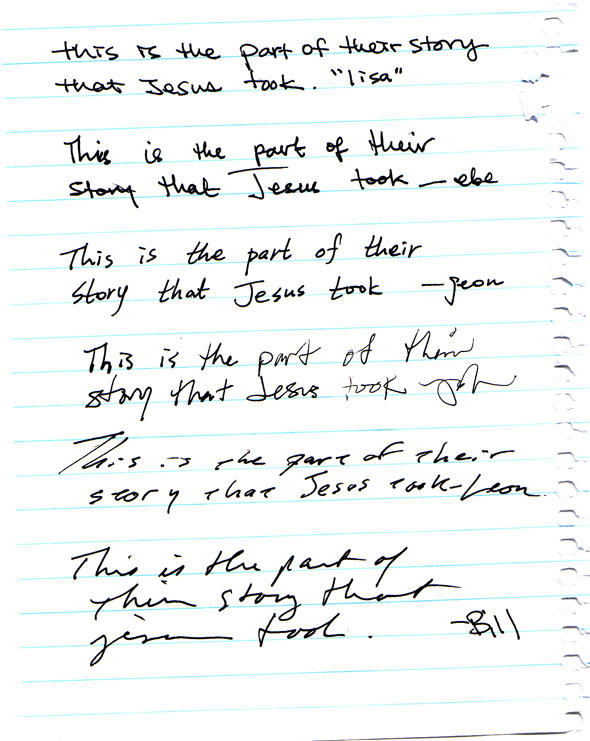 this is the part of their story
that Jesus took. "lisa"
This is the part of their
story that Jesus took — ebe
This is the part of their
story that Jesus took — jeon
This is the part of their
story that Jesus took —
This is the part of their
story that Jesus took - Leon
This is the part of
their story that
jesus took. -Bill